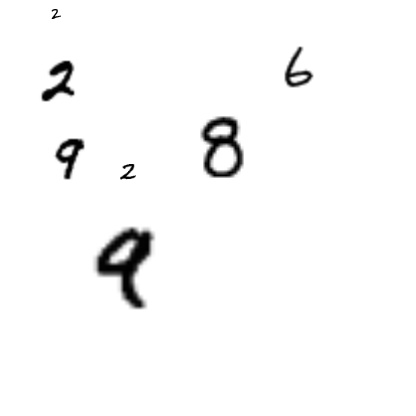 2
2 6
9 2 8
9